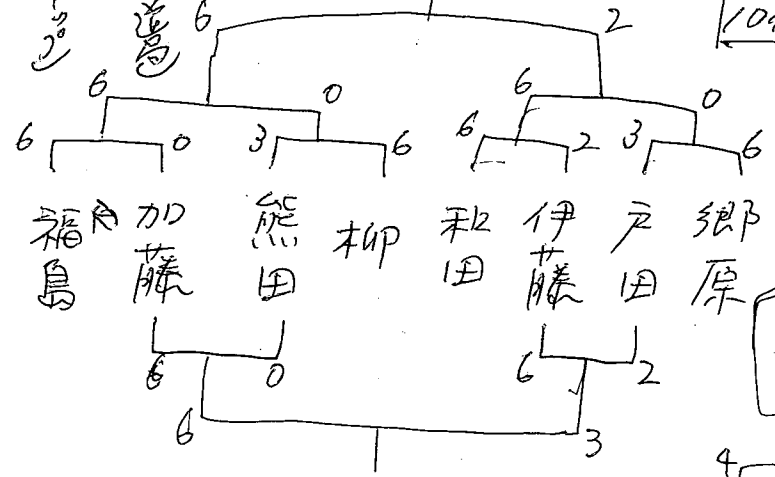 6 2
6 0 6 0
6 0 3 6 6 2 3 6
福島 加藤 熊田 柳 和田 伊藤 戸田 郷原
6 0 6 2
6 3
4